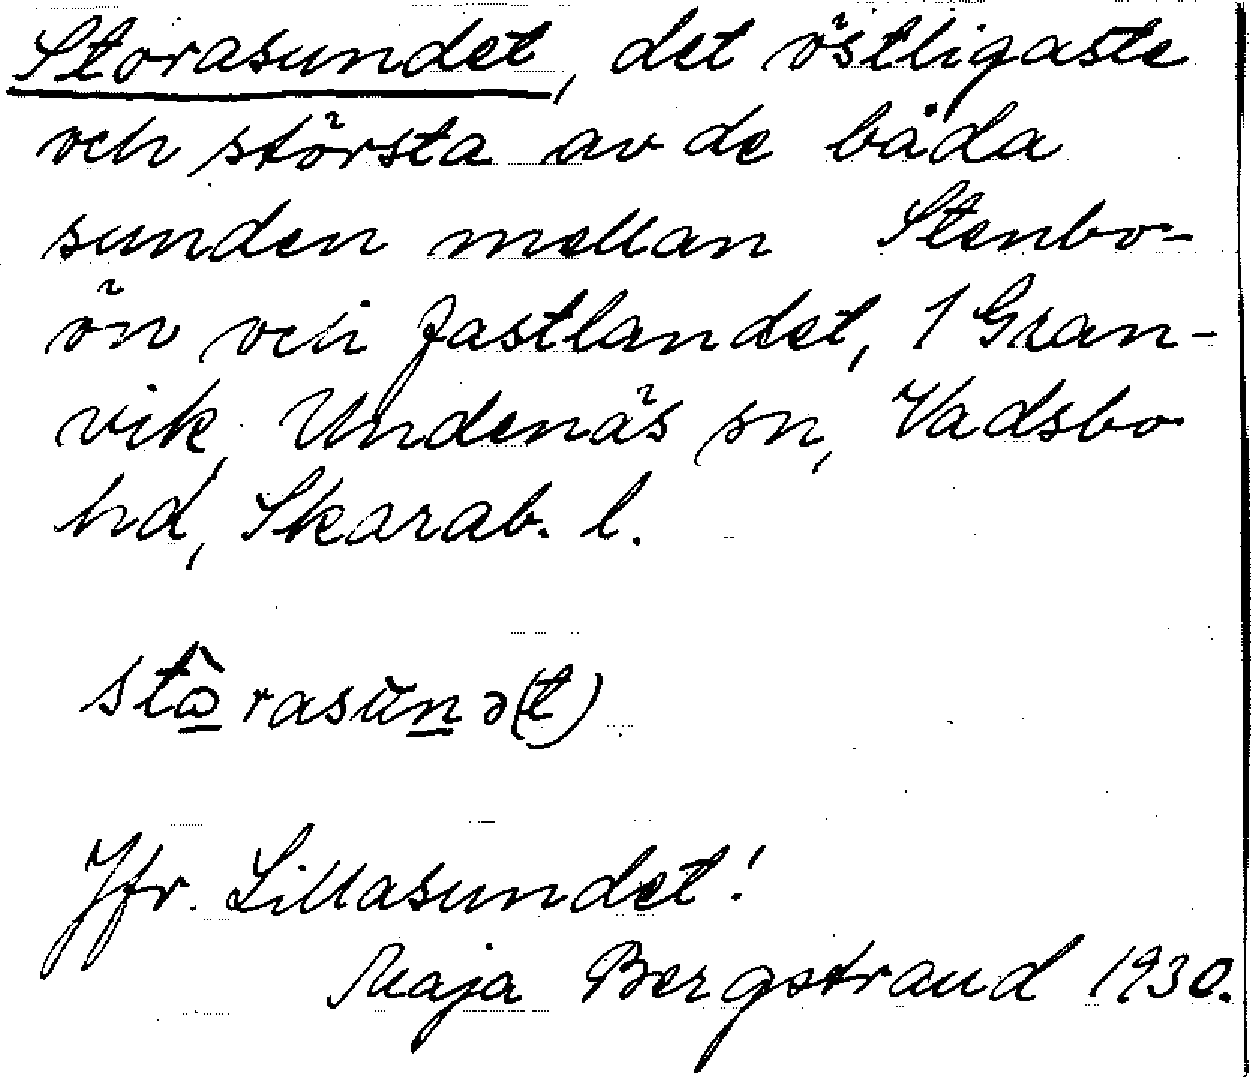 Storasundet, det östligaste
och största av de båda
sunden mellan Stenbo-
ön och fastlandet, 1 Gran-
vik, Undenäs sn, Vadsbo
hd, Skarab. l.
Jfr. Lillasundet!
Maja Bergstrand 1930.